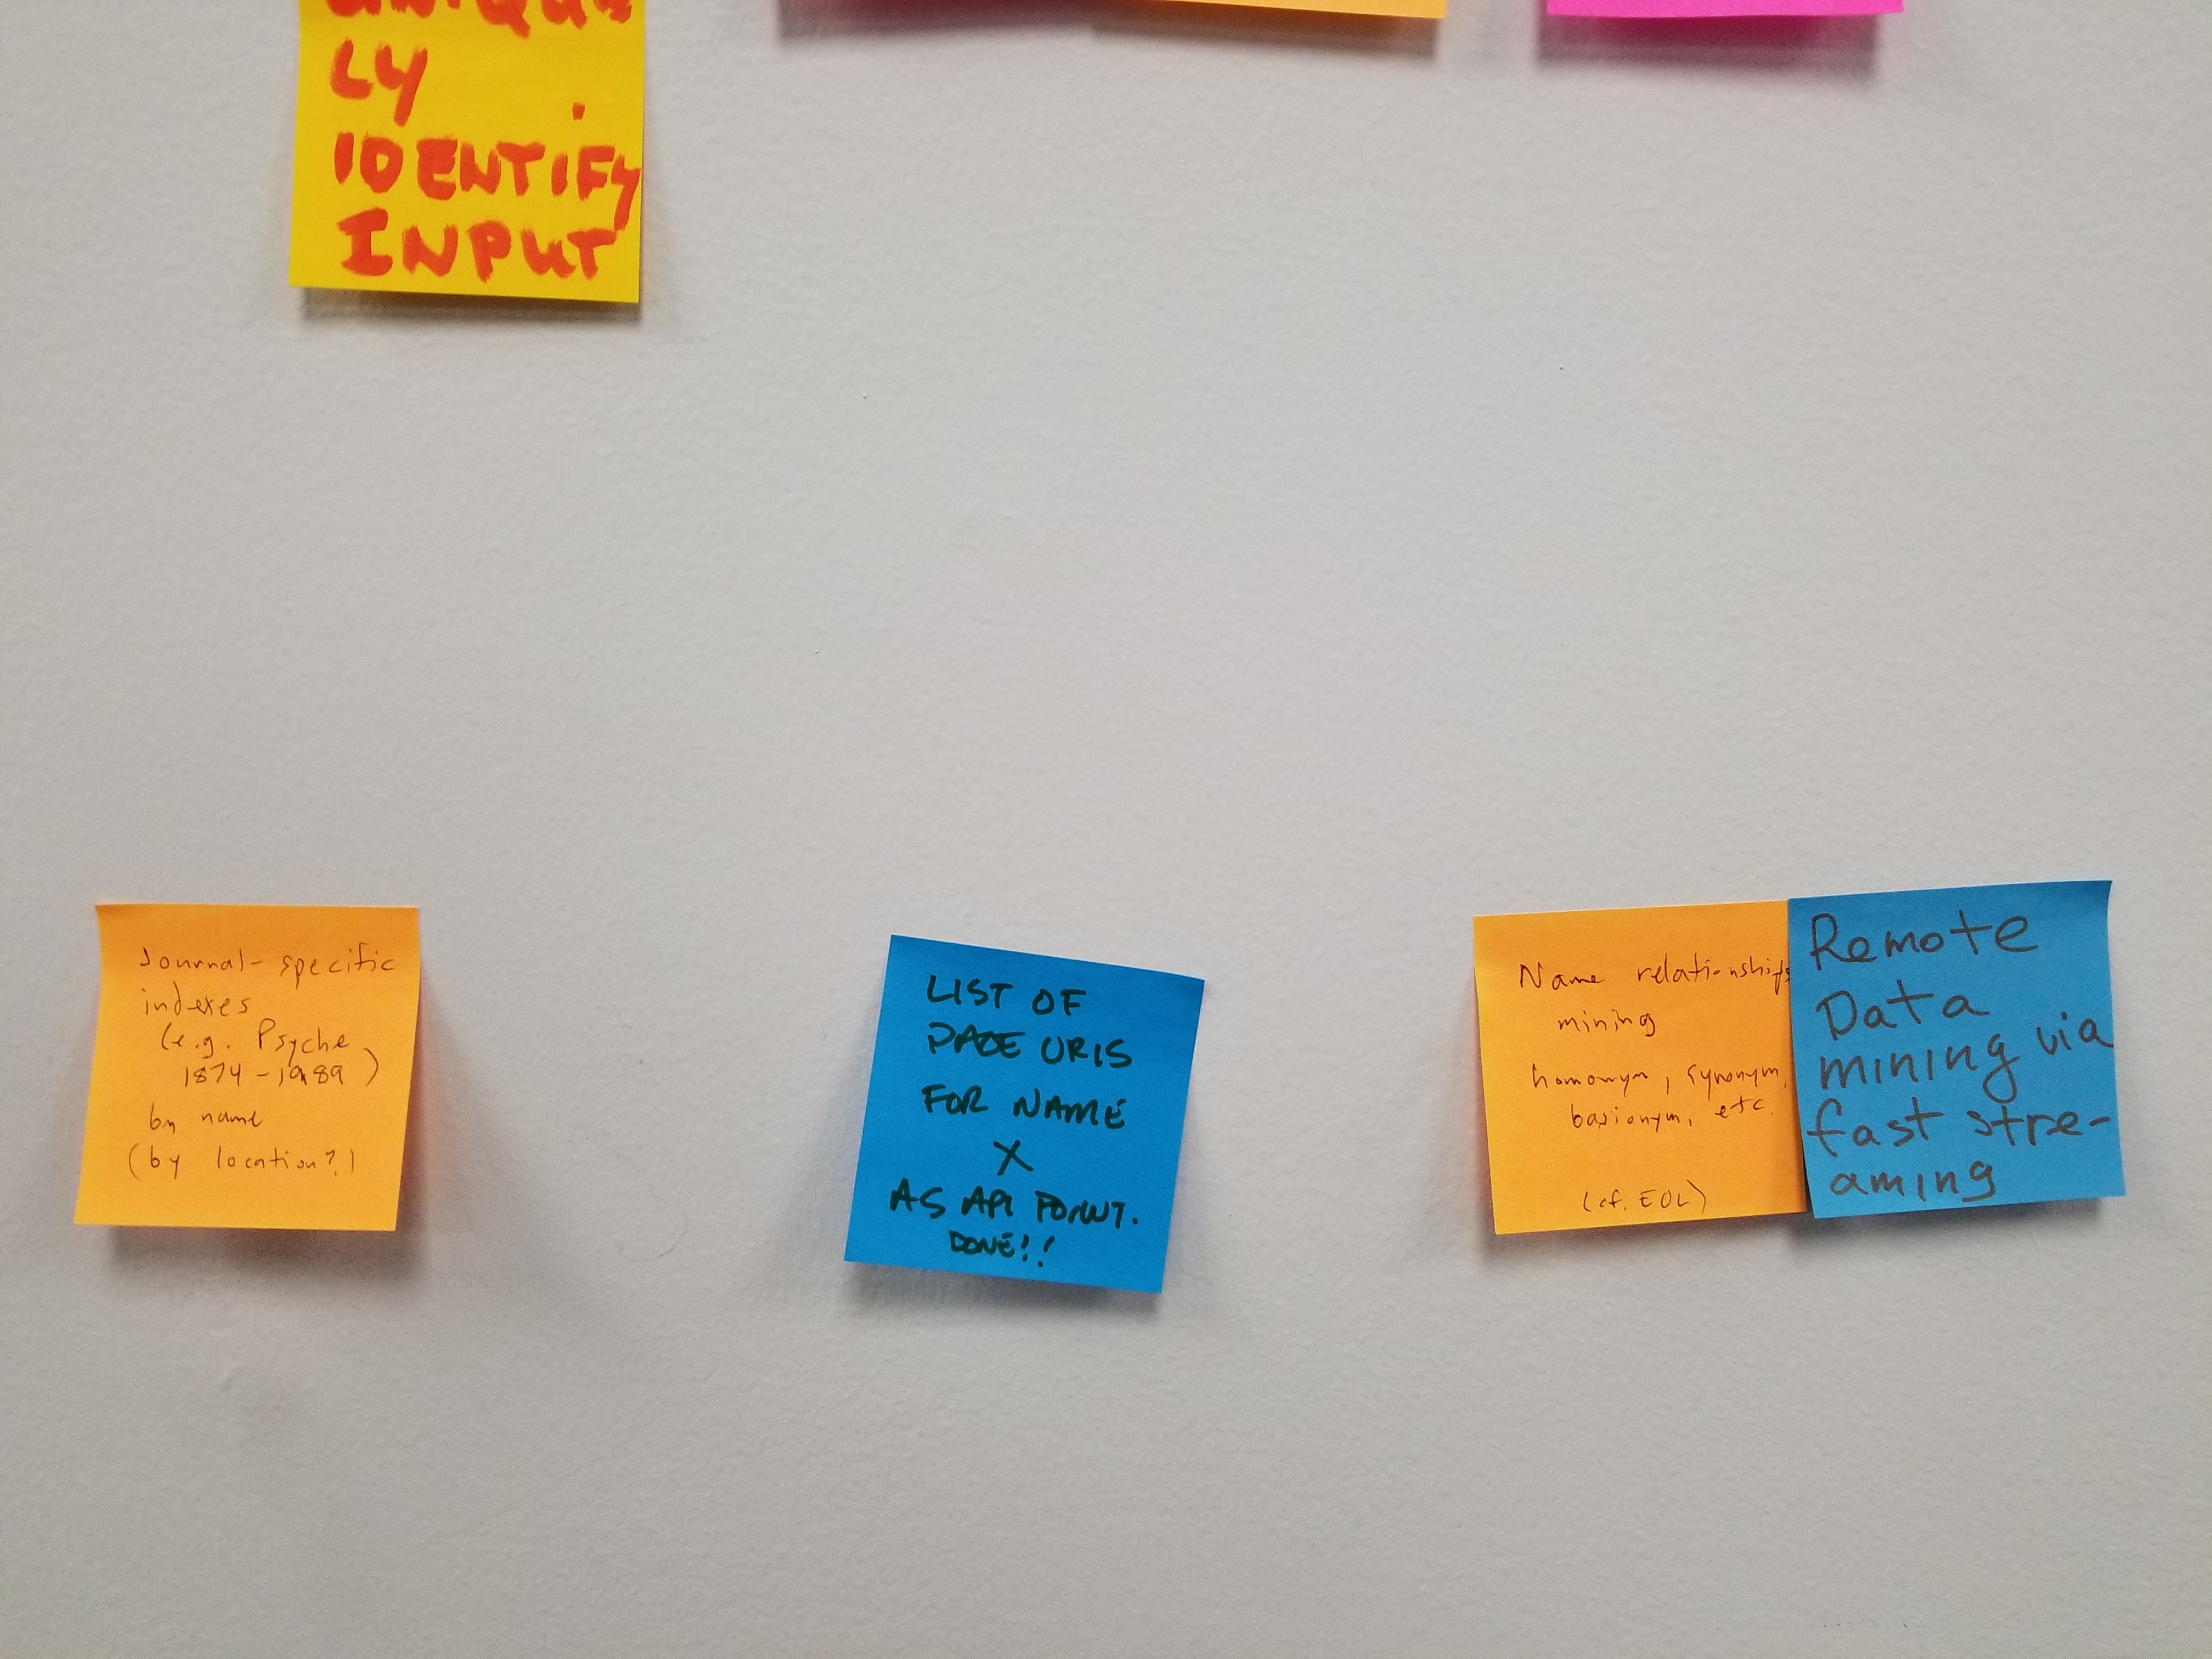 UNIQUE
LY
IDENTIFY
INPUT
Journal-specific
indexes
(e.g. Psyche
1874-1989)
by name
(by location?)
LIST OF
PAGE URIS
FOR NAME
X
AS API POINT.
DONE!!
Name relationships
mining
homonym, synonym,
basionym, etc.
(cf. EOL)
Remote
Data
mining via
fast stre-
aming